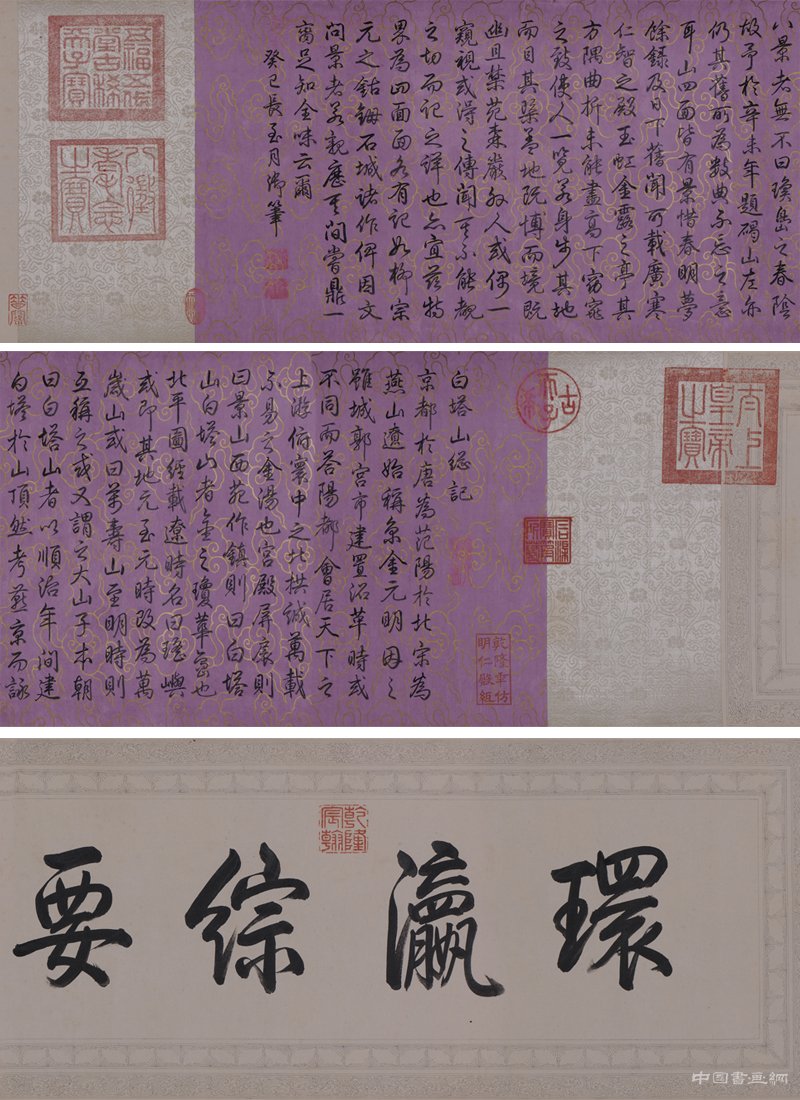 八景者無不曰瓊島之春陰
故予於辛未年題碣山左亦
仍其舊所為數典不忘之意
耳山四面皆有景惜春明夢
餘錄及日下舊聞所載廣寒
仁智之殿玉虹金露之亭其
方隅曲折未能盡高下窈窕
之致使人一覽若身步其地
而目其槩蓋地既博而境既
幽且禁苑森嚴外人或偶一
窺視或得之傳聞其不能覩
之切而記之詳也亦宜茲特
界為四面面各有記如柳宗
元之鈷鉧石城諸作俾因文
問景者若親歷其間嘗鼎一
臠足知全味云爾
癸巳長至月御筆
五福五代堂古稀天子寶
八徵耄念之寶
太上皇帝之寶
古希天子
石渠寶笈所藏
乾隆年仿明仁殿紙
白塔山總記
京都於唐為范陽於北宋為
燕山遼始稱京金元明因之
雖城郭宮市建置沿革時或
不同而答陽都會居天下之
上游俯寰中之北拱誠萬載
不易之金湯也宮殿屏扆則
曰景山西苑作鎮則曰白塔
山白塔山者金之瓊華島也
北平圖經載遼時名曰瑤嶼
或即其地元至元時改為萬
歲山或曰萬壽山至明時則
互稱之或又謂之大山子本朝
曰白塔山者以順治年間建
白塔於山頂然考燕京而詠
乾隆宸翰
環瀛綜要
中國書画網